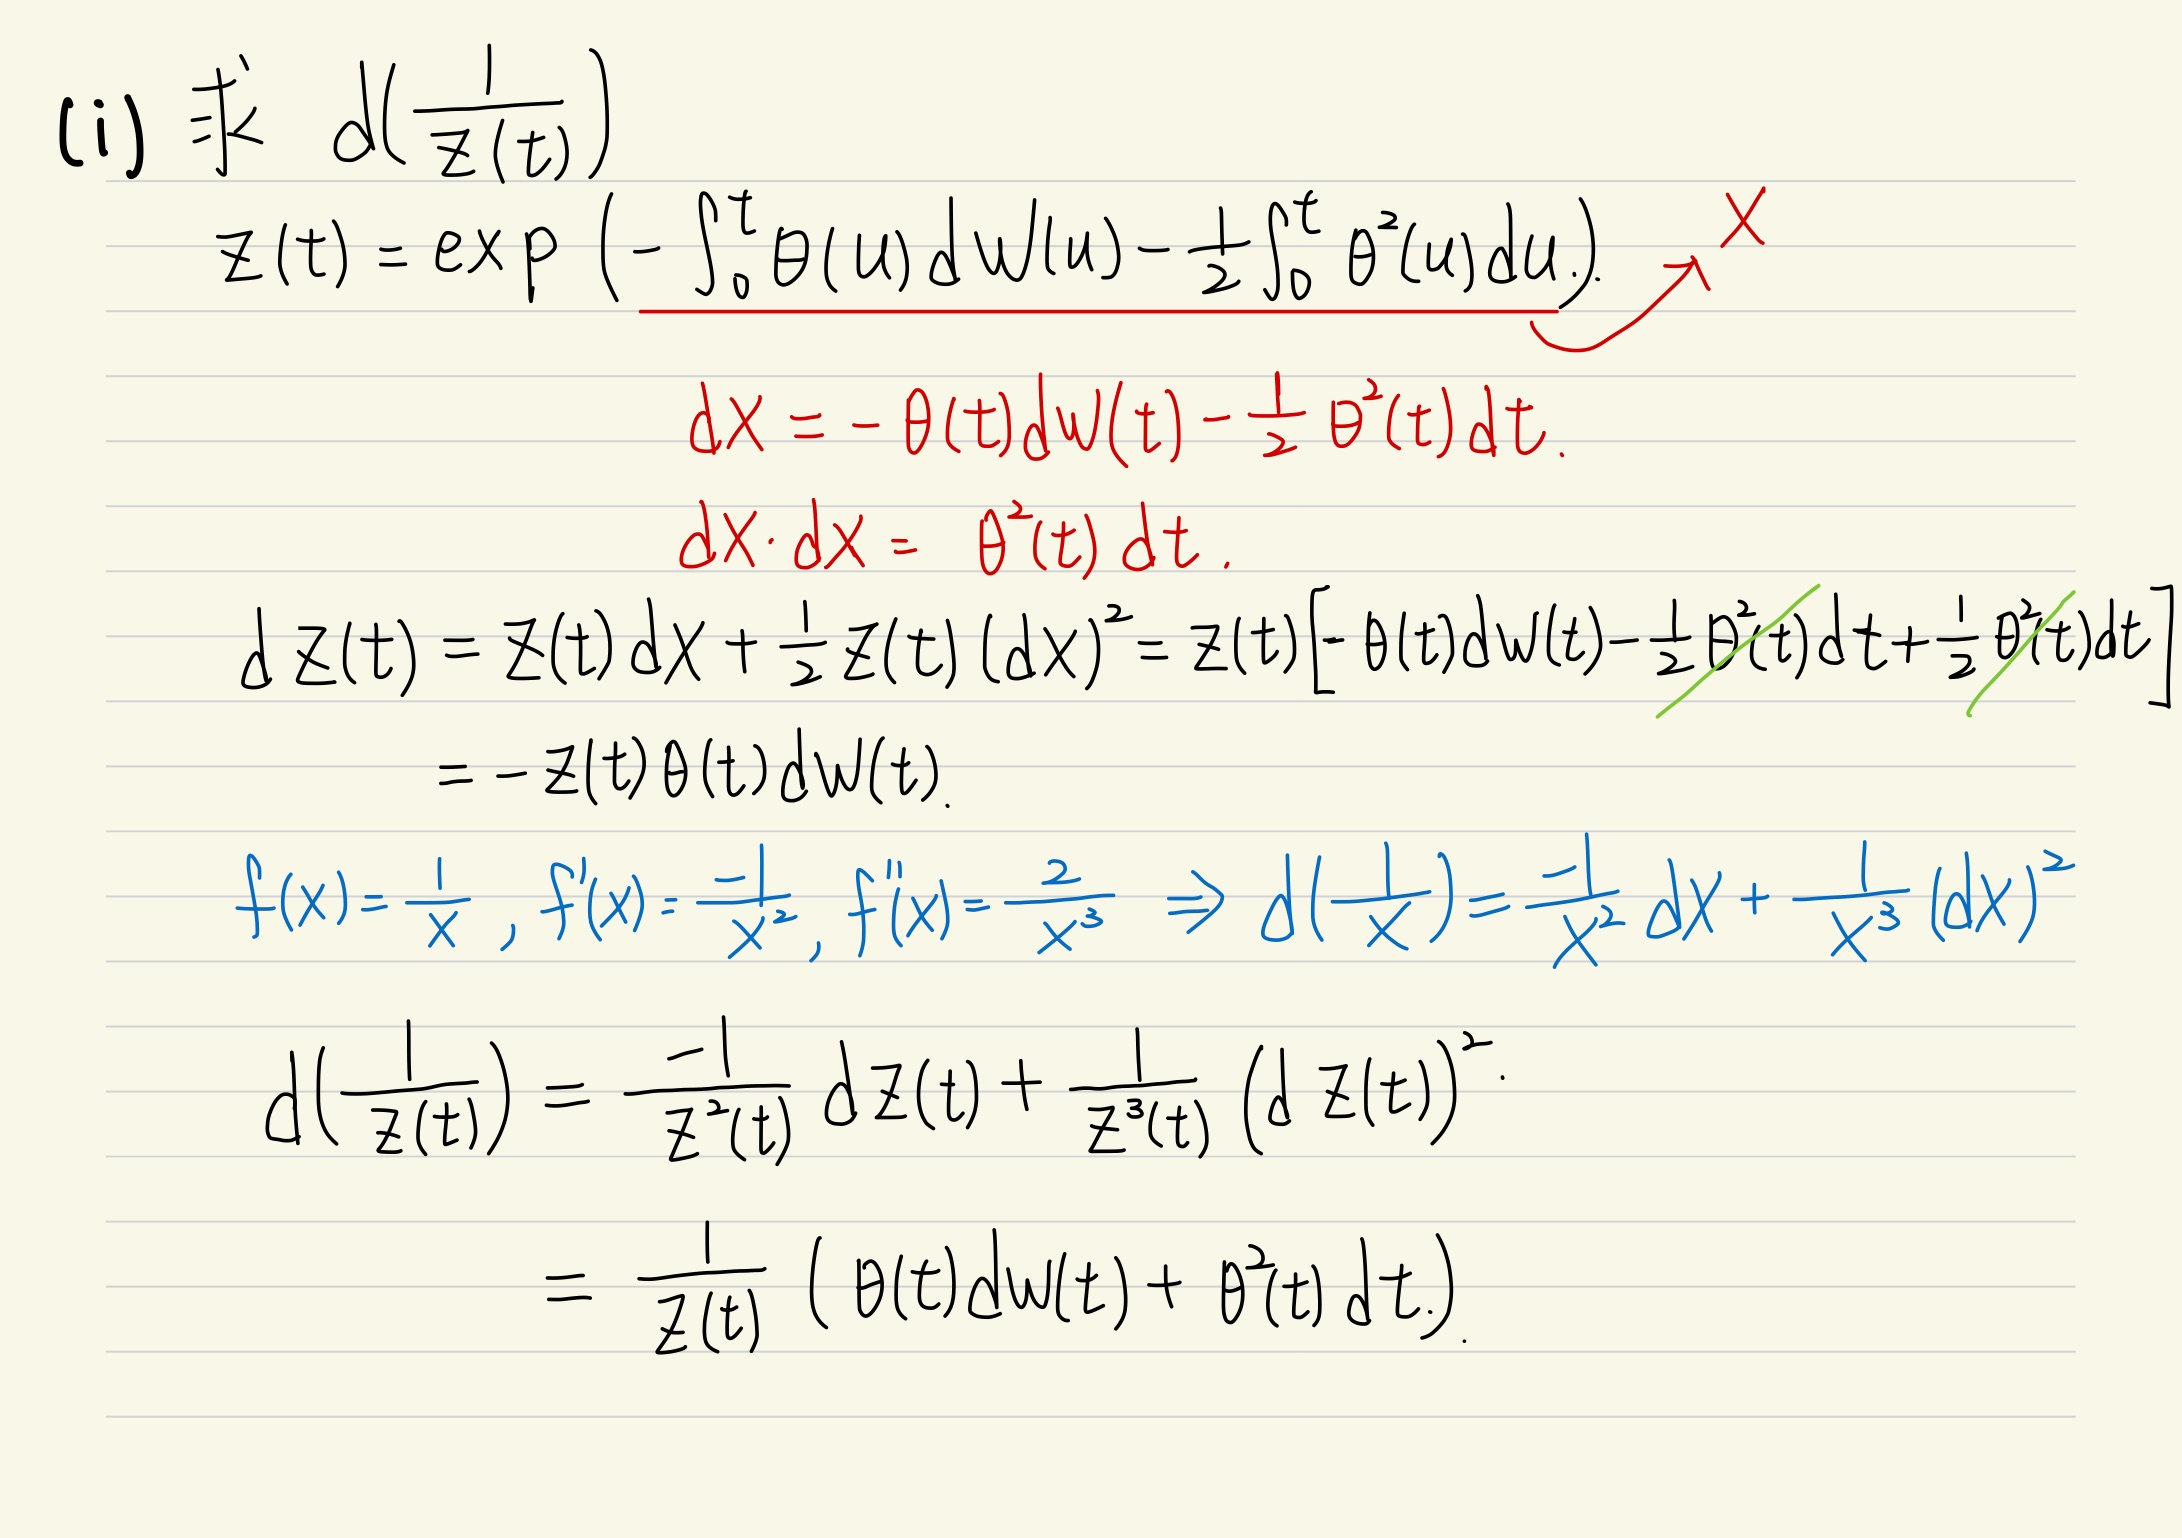 (i) 求 d(1/Z(t))
Z(t) = exp(-∫₀ᵗ θ(u)dW(u) - 1/2 ∫₀ᵗ θ²(u)du.). X
dX = -θ(t)dW(t) - 1/2 θ²(t)dt.
dX·dX = θ²(t)dt.
dZ(t) = Z(t)dX + 1/2 Z(t)(dX)² = Z(t)[-θ(t)dW(t) - 1/2 θ²(t)dt + 1/2 θ²(t)dt]
= -Z(t)θ(t)dW(t).
f(x) = 1/x, f'(x) = -1/x², f''(x) = 2/x³ ⇒ d(1/X) = -1/X² dX + 1/X³ (dX)²
d(1/Z(t)) = -1/Z²(t) dZ(t) + 1/Z³(t) (dZ(t))².
= 1/Z(t) (θ(t)dW(t) + θ²(t)dt.).